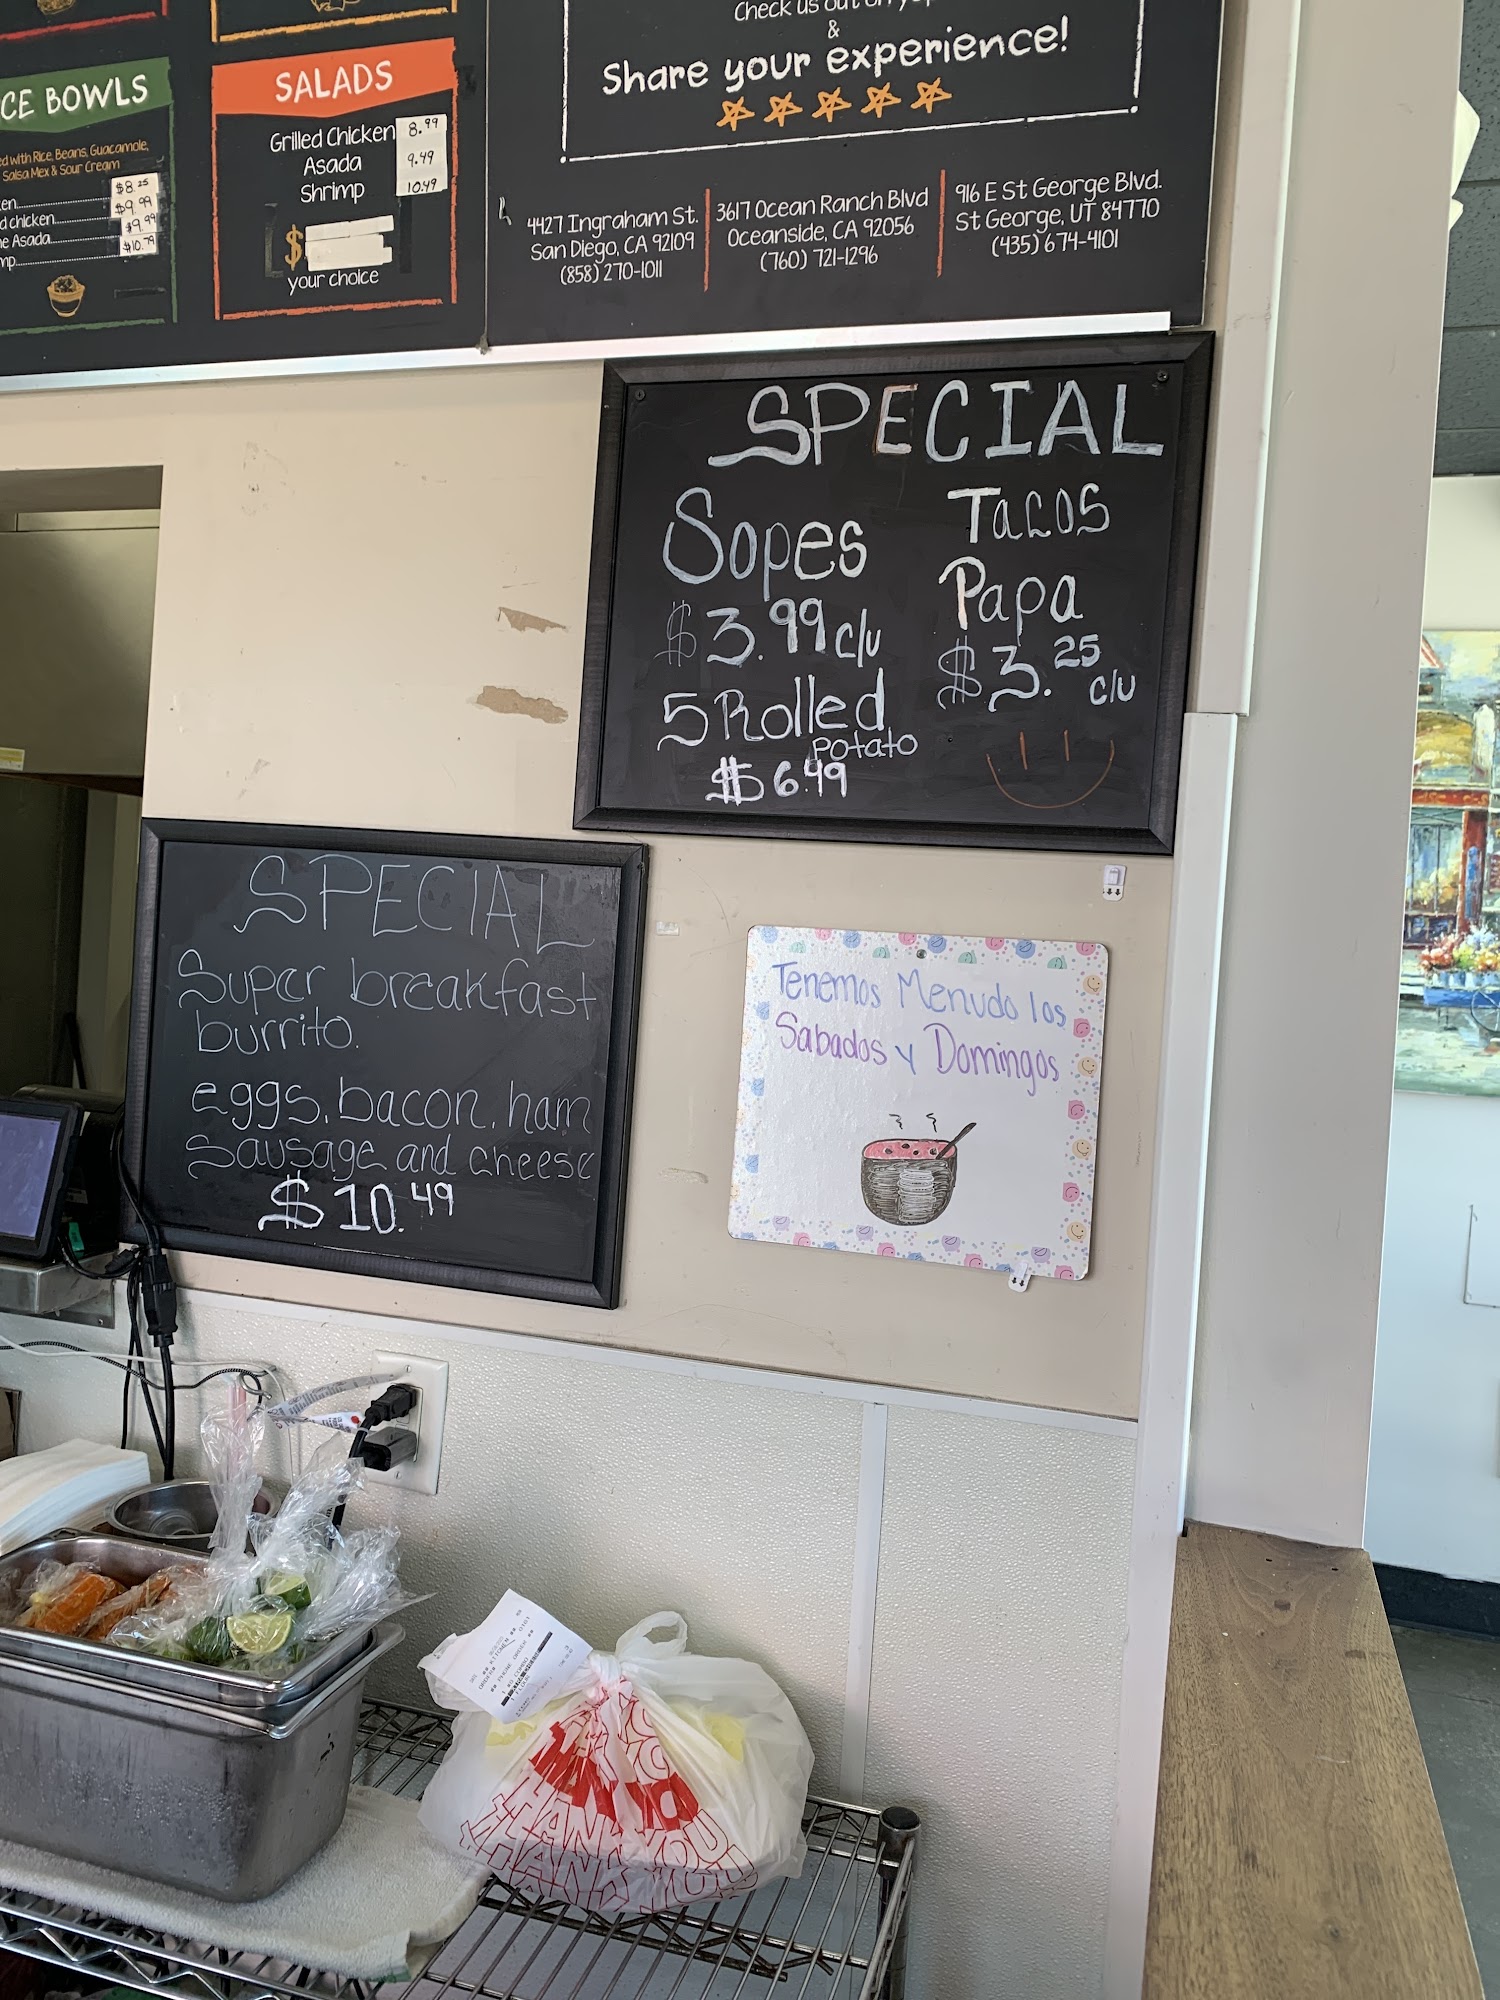 CE BOWLS
ed with Rice, Beans, Guacamole,
Salsa Mex & Sour Cream
en $8.25
d chicken $9.99
ne Asada $9.99
mp $10.79
SALADS
Grilled Chicken 8.99
Asada 9.49
Shrimp 10.49
$
your choice
Check us out on
&
Share your experience!
4427 Ingraham St.
San Diego, CA 92109
(858) 270-1011
3617 Ocean Ranch Blvd
Oceanside, CA 92056
(760) 721-1296
916 E St George Blvd.
St George, UT 84770
(435) 674-4101
SPECIAL
Sopes
$3.99 c/u
5 Rolled
potato
$6.49
Tacos
Papa
$3.25
c/u
SPECIAL
Super breakfast
burrito.
eggs, bacon, ham
sausage and cheese
$10.49
Tenemos Menudo los
Sabados y Domingos
THANK YOU
THANK YOU